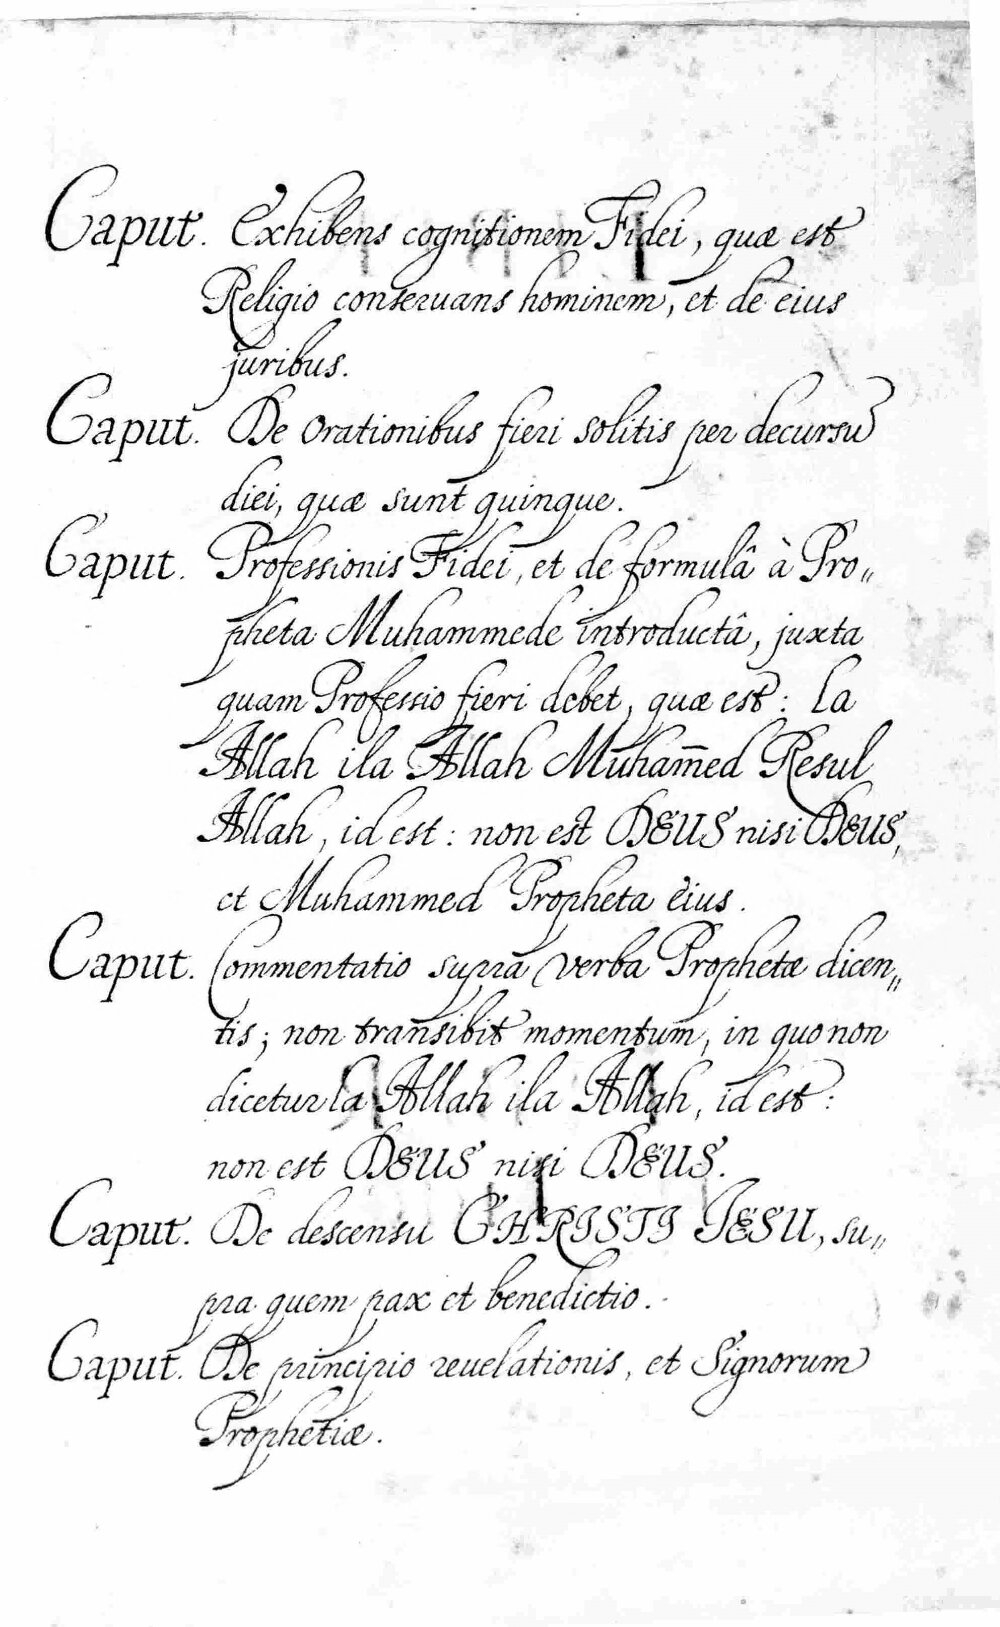 Caput. Exhibens cognitionem Fidei, quæ est
Religio conseruans hominem, et de eius
juribus.
Caput. De orationibus fieri solitis per decursū
diei, quæ sunt quinque.
Caput. Professionis Fidei, et de formulâ à Pro„
pheta Muhammede introductâ, juxta
quam Professio fieri debet, quæ est: la
Allah ila Allah Muham̄ed Resul
Allah, id est: non est DEUS nisi DEUS,
et Muhammed Propheta eius.
Caput. Commentatio supra verba Prophetæ dicen„
tis; non transibit momentum, in quo non
dicetur la Allah ila Allah, id est:
non est DEUS nisi DEUS.
Caput. De descensu CHRISTI IESU, su„
pra quem pax et benedictio.
Caput. De principio reuelationis, et Signorum
Prophetiæ.